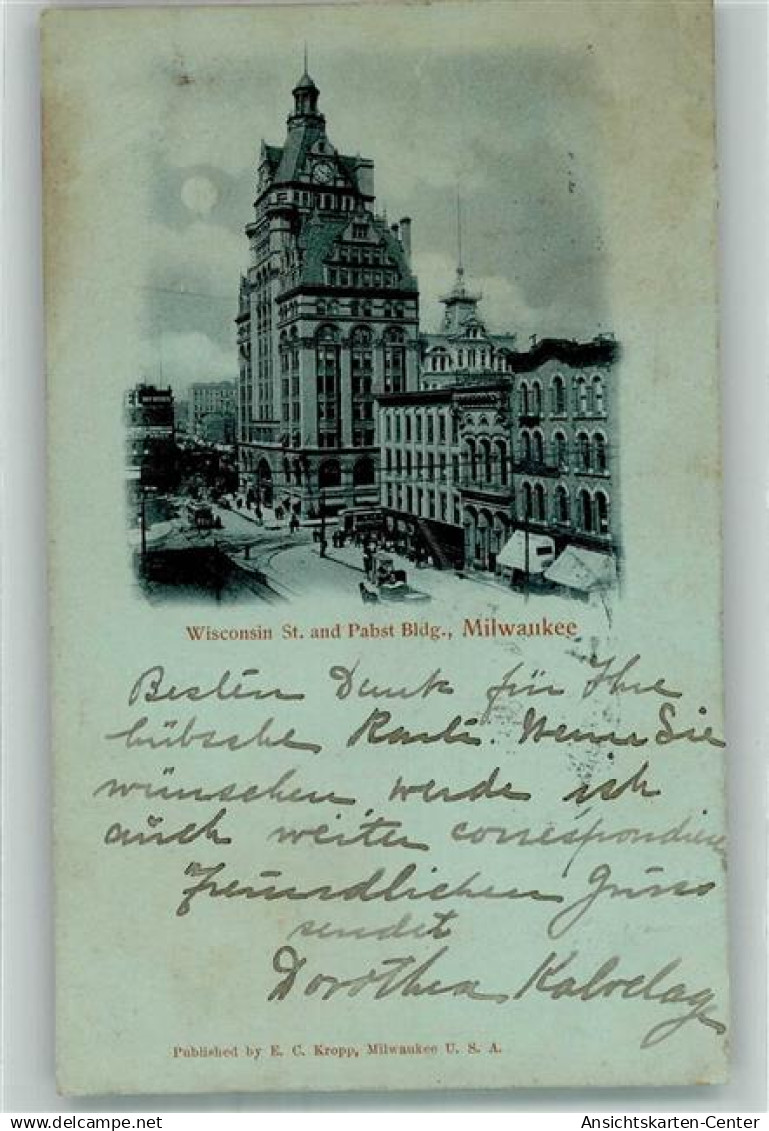 Wisconsin St. and Pabst Bldg., Milwaukee
Besten Dank für Ihre
hübsche Karte. Wenn Sie
wünschen, werde ich
auch weiter correspondieren
Freundlichen Gruss
sendet
Dorothea Kalvelage
Published by E. C. Kropp, Milwaukee U. S. A.
Ansichtskarten-Center